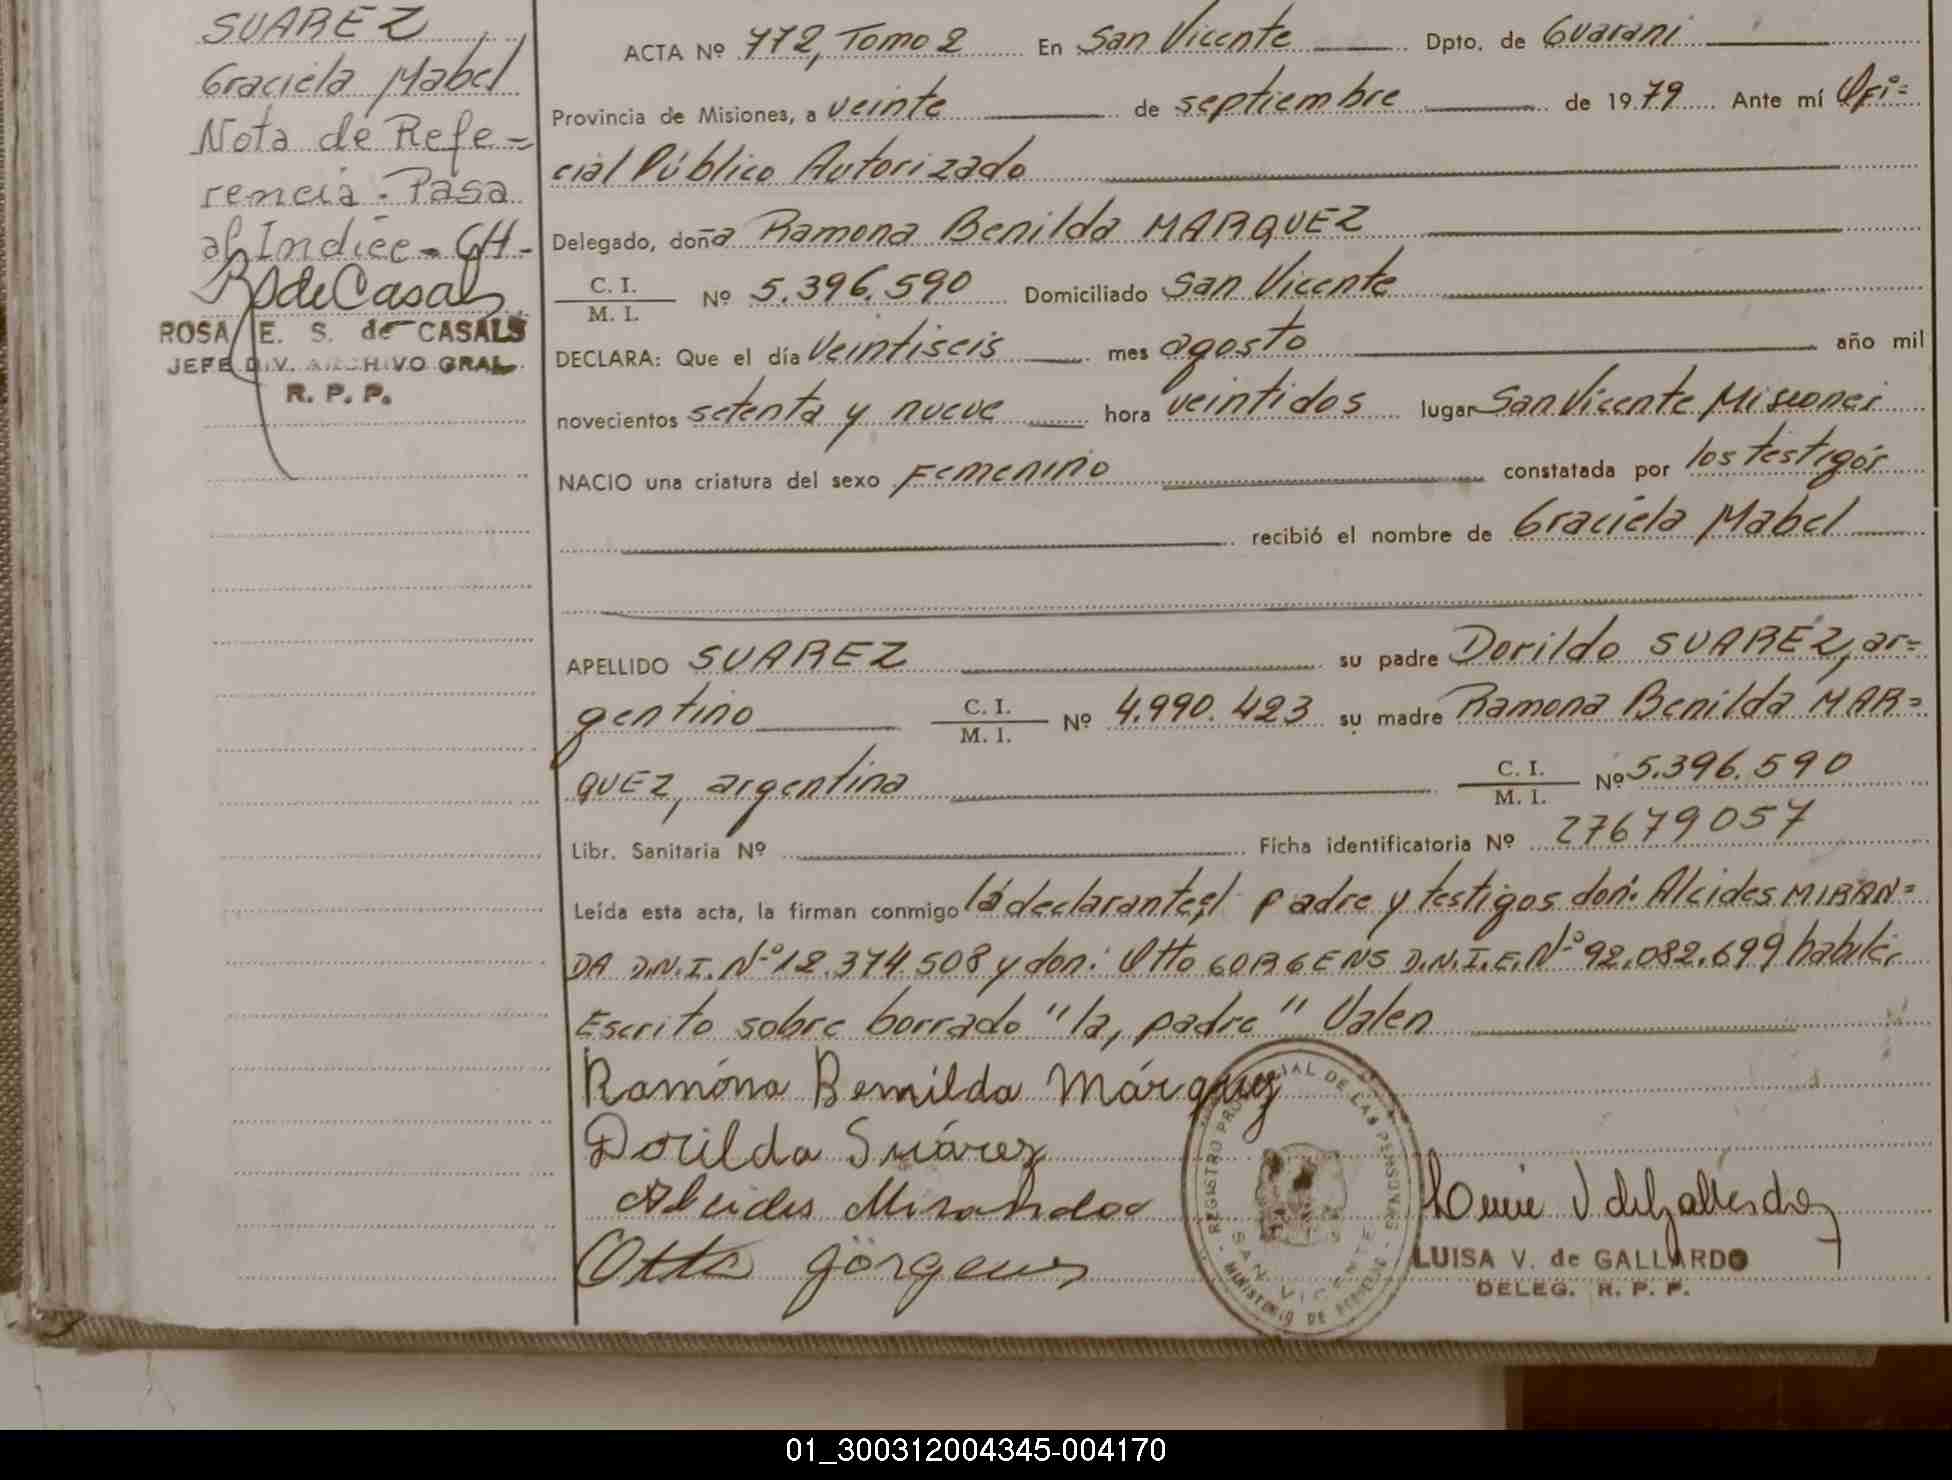 SUAREZ
Graciela Mabel
Nota de Refe=
rencia. Pasa
al Indice - CH.-
ROSA E. S. de CASALS
JEFE DIV. ARCHIVO GRAL.
R. P. P.
ACTA Nº 772, Tomo 2 En San Vicente Dpto. de Guarani
Provincia de Misiones, a veinte de septiembre de 1979 Ante mí Ofi=
cial Público Autorizado
Delegado, doña Ramona Benilda MARQUEZ
C. I.
M. I. Nº 5.396.590 Domiciliado San Vicente
DECLARA: Que el día Veintiseis mes agosto año mil
novecientos setenta y nueve hora veintidos lugar San Vicente Misiones
NACIO una criatura del sexo Femenino constatada por los testigos
recibió el nombre de Graciela Mabel
APELLIDO SUAREZ su padre Dorildo SUAREZ, ar=
gentino C. I. M. I. Nº 4.990.423 su madre Ramona Benilda MAR=
QUEZ, argentina C. I. M. I. Nº 5.396.590
Libr. Sanitaria Nº Ficha identificatoria Nº 27679057
Leída esta acta, la firman conmigo la declarante, el padre y testigos don: Alcides MIRAN=
DA D.N.I. Nº 12.374.508 y don: Otto GORGENS D.N.I.E. Nº 92.082.699 habiles
Escrito sobre borrado "la, padre" Valen
Ramóna Benilda Márquez
Dorilda Suárez
Alcides Miranda
Otto Görgens
REGISTRO PROVINCIAL DE LAS PERSONAS
SAN VICENTE
MINISTERIO DE GOBIERNO
LUISA V. de GALLARDO
DELEG. R. P. P.
01_300312004345-004170